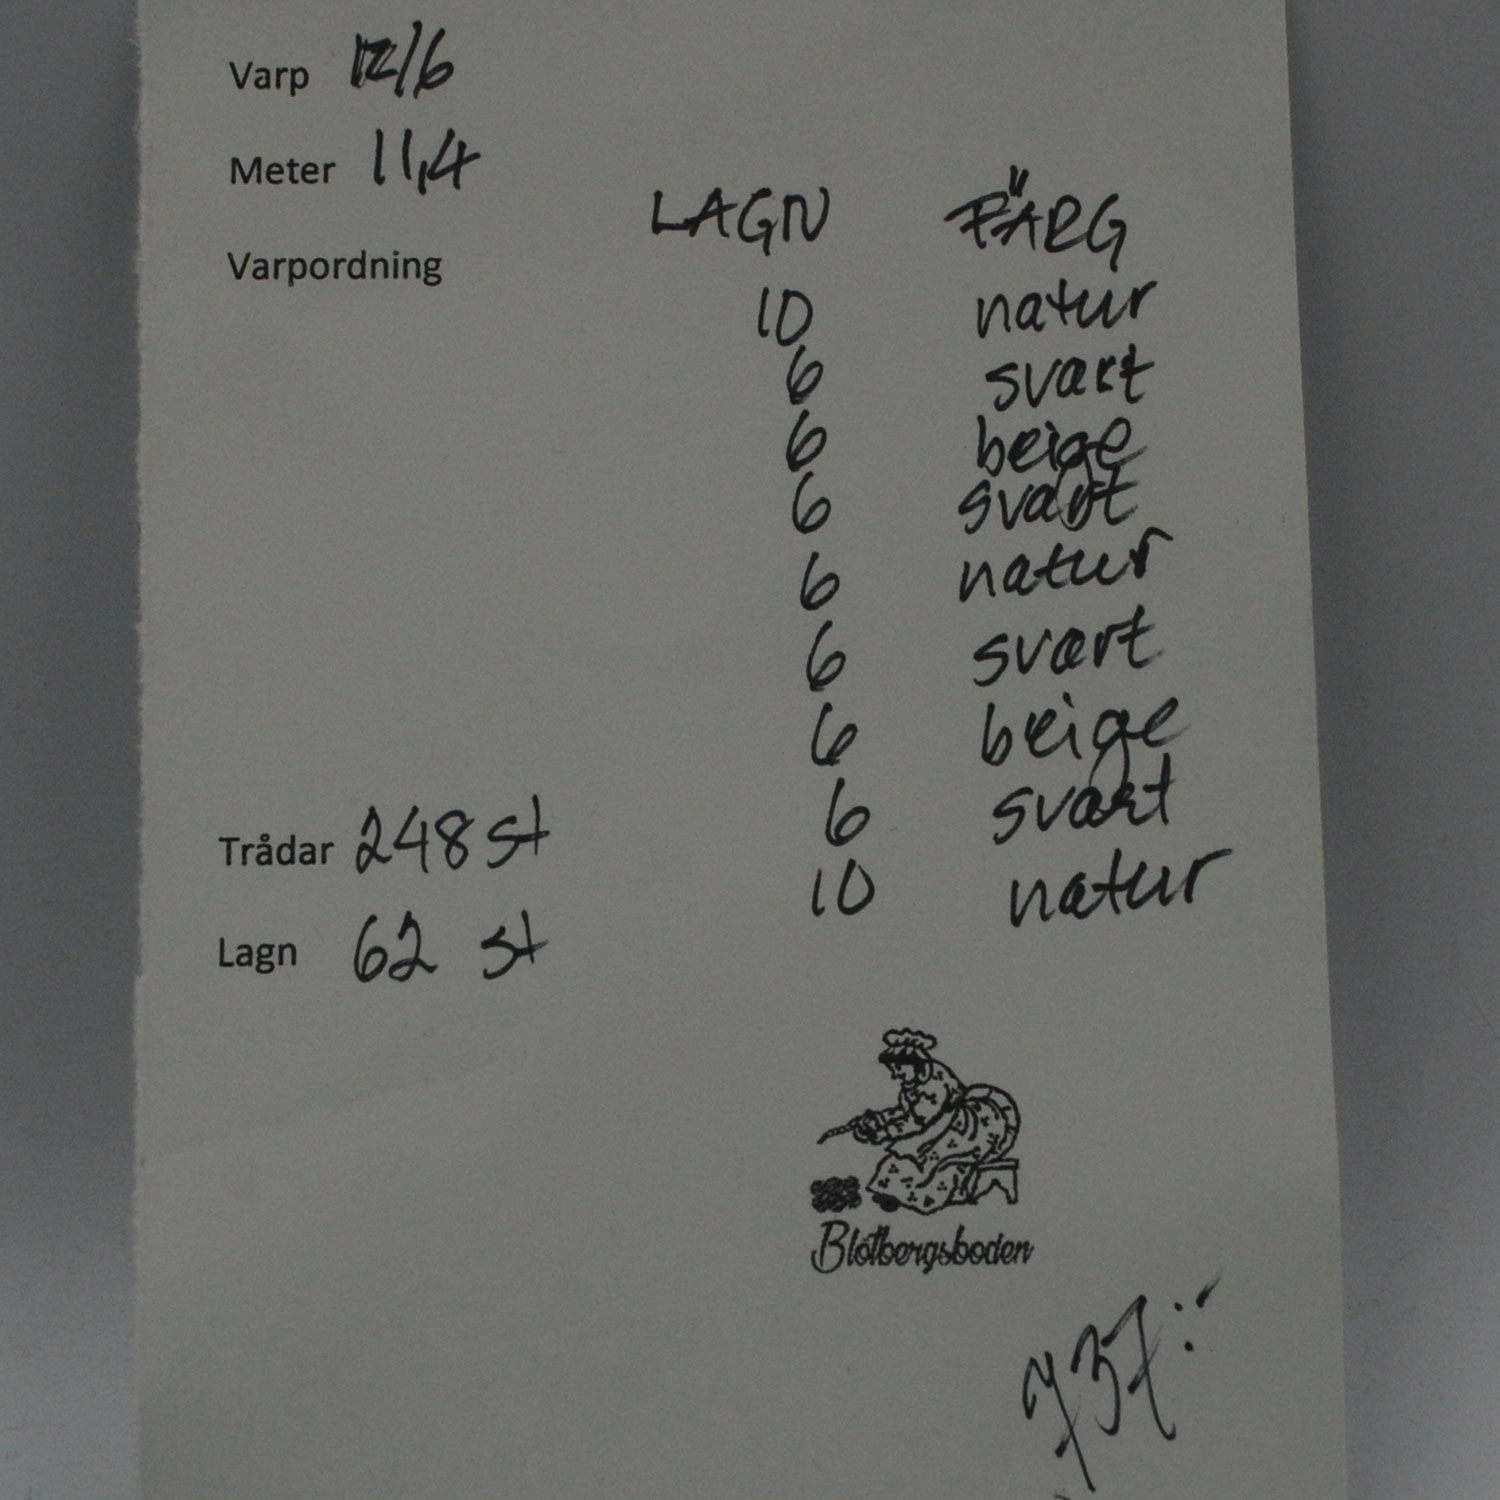 Varp 12/6
Meter 11,4
LAGN FÄRG
Varpordning
10 natur
6 svart
6 beige
6 svart
6 natur
6 svart
6 beige
6 svart
Trådar 248 st
10 natur
Lagn 62 st
Blotbergsboden
737:-